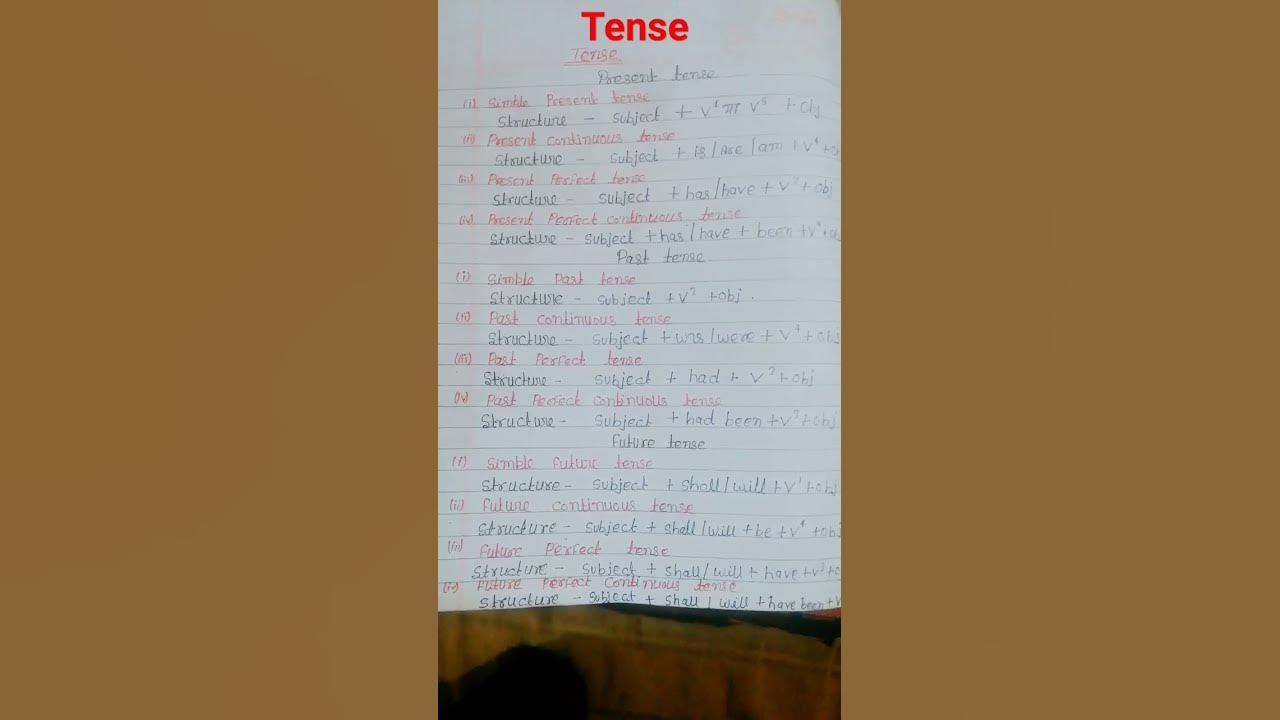 Tense
Tense
Present tense
(i) Simble Present tense
Structure - subject + V¹ या V⁵ + obj
(ii) Present continuous tense
Structure - subject + is/are/am + V⁴ +
(iii) Present Perfect tense
Structure - subject + has/have + V³ + obj
(iv) Present Perfect continuous tense
Structure - subject + has/have + been + V⁴ +
Past tense
(i) Simble Past tense
Structure - subject + V² + obj.
(ii) Past continuous tense
Structure - subject + was/were + V⁴ + obj
(iii) Past Perfect tense
Structure - subject + had + V³ + obj
(iv) Past Perfect continuous tense
Structure - subject + had been + V³ + obj
future tense
(i) Simble future tense
Structure - subject + shall/will + V¹ + obj
(ii) future continuous tense
Structure - subject + shall/will + be + V⁴ + obj
(iii) future Perfect tense
Structure - subject + shall/will + have + V³ +
(iv) future Perfect continuous tense
Structure - subject + shall/will + have been + V